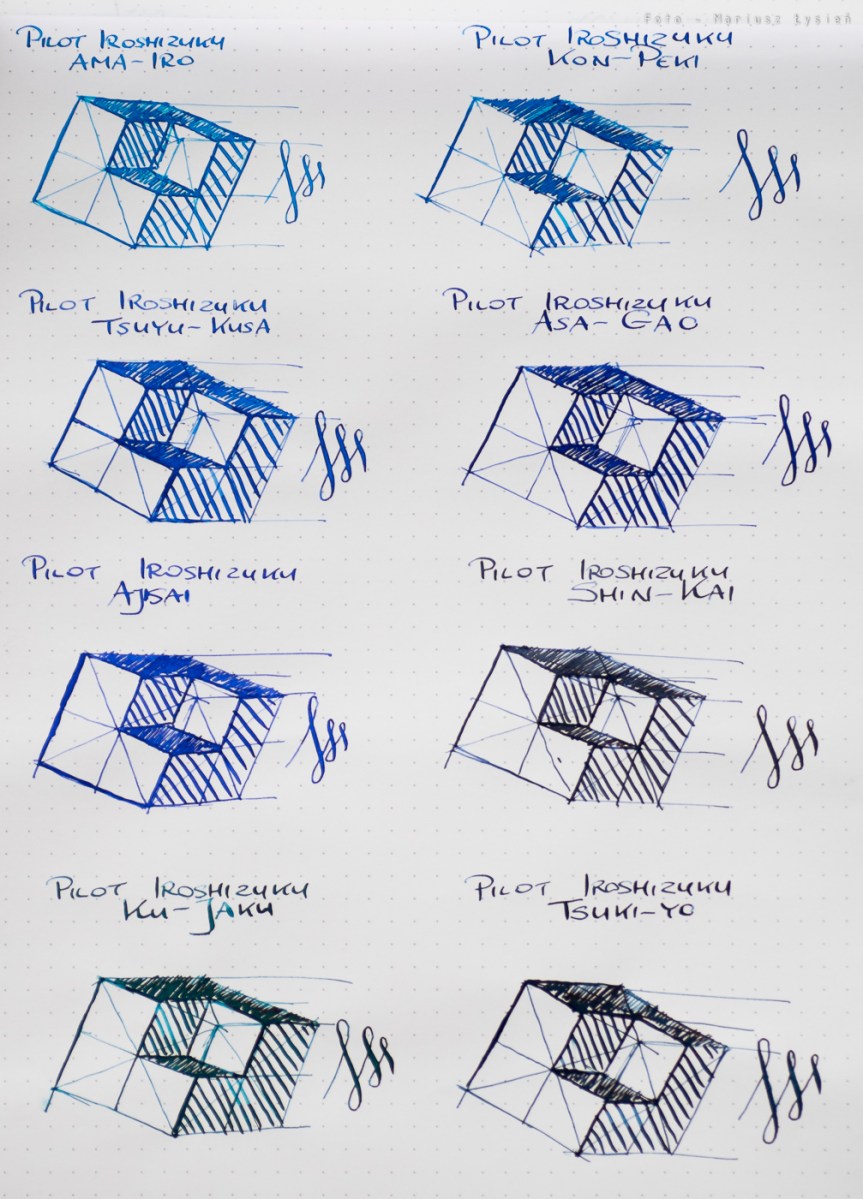 Foto - Mariusz Łysień
Pilot Iroshizuku
Ama-Iro
Pilot Iroshizuku
Kon-Peki
Pilot Iroshizuku
Tsuyu-Kusa
Pilot Iroshizuku
Asa-Gao
Pilot Iroshizuku
Ajisai
Pilot Iroshizuku
Shin-Kai
Pilot Iroshizuku
Ku-Jaku
Pilot Iroshizuku
Tsuki-Yo